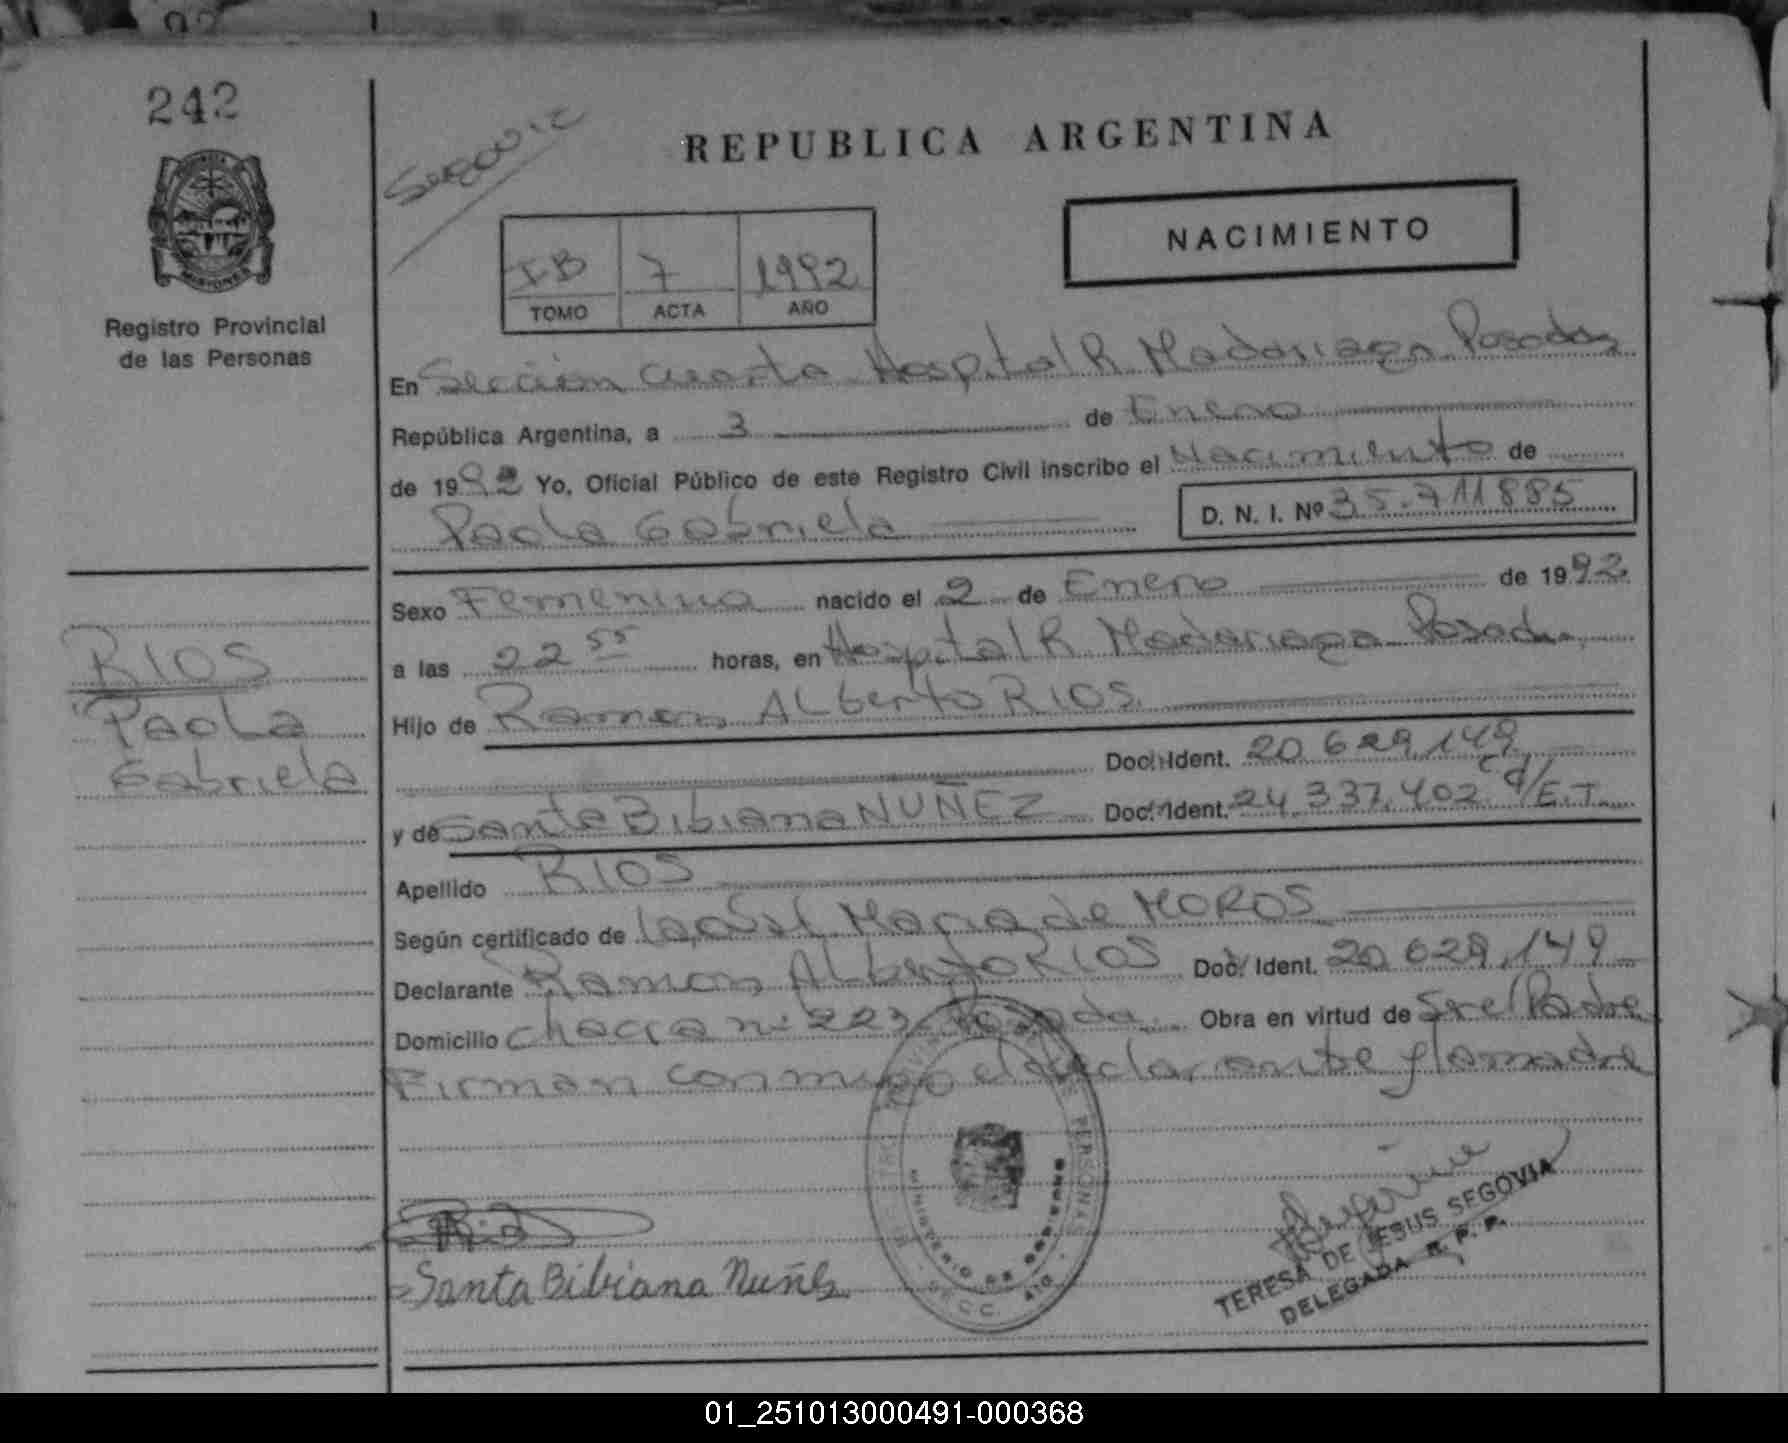 242
Segovia
REPUBLICA ARGENTINA
NACIMIENTO
IB 7 1992
TOMO ACTA AÑO
MISIONES
Registro Provincial
de las Personas
En Sección Cuarta Hospital R Madariaga Posadas
República Argentina, a 3 de Enero
de 1992 Yo, Oficial Público de este Registro Civil inscribo el Nacimiento de
Paola Gabriela D. N. I. Nº 35.711885
Sexo Femenino nacido el 2 de Enero de 1992
a las 22 55 horas, en Hospital R Madariaga Posadas
Hijo de Ramon ALberto RIOS
Doc. Ident. 20.629.149
y de Santa Bibiana NUÑEZ Doc. Ident. 24.337.402 C d/E.T.
Apellido RIOS
Según certificado de Maria de MOROS
Declarante Ramon ALberto RIOS Doc. Ident. 20.629.149
Domicilio Chacra nº 223 Posadas Obra en virtud de Ser el Padre
Firman conmigo el declarante y la madre
RIOS
Paola
Gabriela
PERSONAS
MINISTERIO DE GOBIERNO
Santa Bibiana Nuñez
TERESA DE JESUS SEGOVIA
DELEGADA R. P. P.
01_251013000491-000368